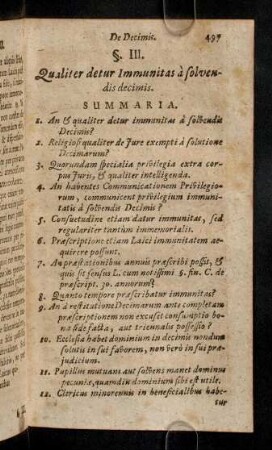 De Decimis. 497
§. III.
Qualiter detur Immunitas à solven-
dis decimis.
SUMMARIA.
1. An & qualiter detur immunitas à solvendis
Decimis?
2. Religiosi qualiter de Jure exempti à solutione
Decimarum?
3. Quorundam specialia privilegia extra cor-
pus Juris, & qualiter intelligenda.
4. An habentes Communicationem Privilegio-
rum, communicent privilegium immuni-
tatis à solvendis Decimis?
5. Consuetudine etiam datur immunitas, sed
regulariter tantùm immemorialis.
6. Præscriptione etiam Laici immunitatem ac-
quirere possunt.
7. An præstationibus annuis præscribi possit, &
quis sit sensus L. cum notissimi §. fin. C. de
præscript. 30. annorum?
8. Quanto tempore præscribatur immunitas?
9. An à restitutione Decimarum ante completam
præscriptionem non excuset consumptio bo-
na fide facta, aut triennalis possessio?
10. Ecclesia habet dominium in decimis nondum
solutis in sui favorem, non verò in sui præ-
judicium.
11. Pupillus mutuans aut solvens manet dominus
pecuniæ, quamdiu dominium sibi est utile.
12. Clericus minorennis in beneficialibus habe-
tur